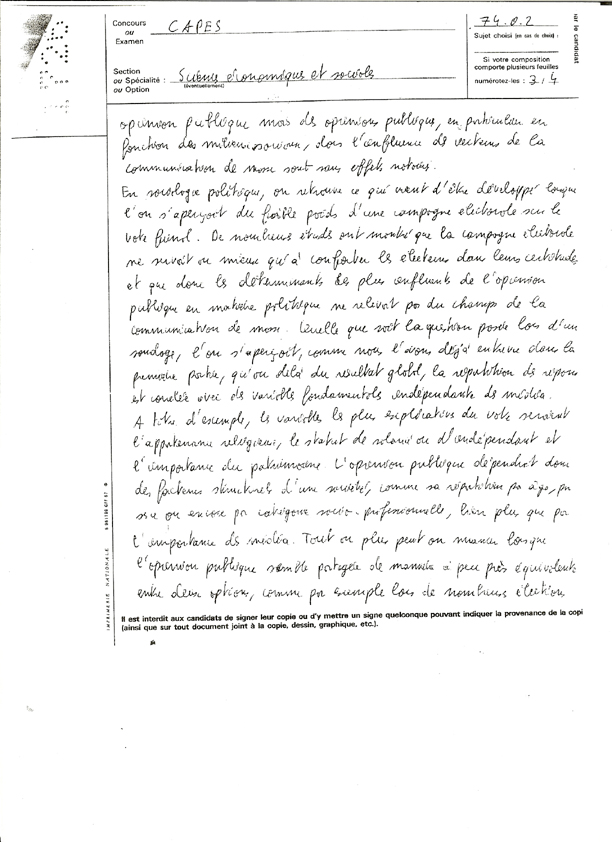 Concours
ou
Examen
CAPES
Section
ou Spécialité :
ou Option
(éventuellement)
Science économiques et sociales
74.0.2
Sujet choisi (en cas de choix) :
Si votre composition
comporte plusieurs feuilles
numérotez-les : 3/4
sur le candidat
opinion publique mais des opinions publiques, en particulier en
fonction des milieux sociaux, dont l'influence de vecteurs de la
communication de masse sont sans effets notoires.
En sociologie politique, on retrouve ce qui vient d'être développé lorsque
l'on s'aperçoit du faible poids d'une campagne électorale sur le
vote final. De nombreux études ont montré que la campagne électorale
ne servait au mieux qu'à conforter les électeurs dans leurs certitudes,
et que donc les déterminants les plus influents de l'opinion
publique en matière politique ne relevait pas du champs de la
communication de masse. Quelle que soit la question posée lors d'un
sondage, l'on s'aperçoit, comme nous l'avons déjà entrevu dans la
première partie, qu'au delà du résultat global, la répartition de répons
est corrélée avec des variables fondamentales indépendante de média.
A titre d'exemple, les variables les plus explicatives du vote seraient
l'appartenance religieuse, le statut de salarié ou d'indépendant et
l'importance du patrimoine. L'opinion publique dépendrait donc
des facteurs structurels d'une société, comme sa répartition par âge, par
sexe ou encore par catégorie socio-professionnelle, bien plus que par
l'importance des média. Tout au plus peut on nuancer lorsque
l'opinion publique semble partagée de manière à peu près équivalente
entre deux options, comme par exemple lors de nombreux élection
Il est interdit aux candidats de signer leur copie ou d'y mettre un signe quelconque pouvant indiquer la provenance de la copi
(ainsi que sur tout document joint à la copie, dessin, graphique, etc.).
IMPRIMERIE NATIONALE